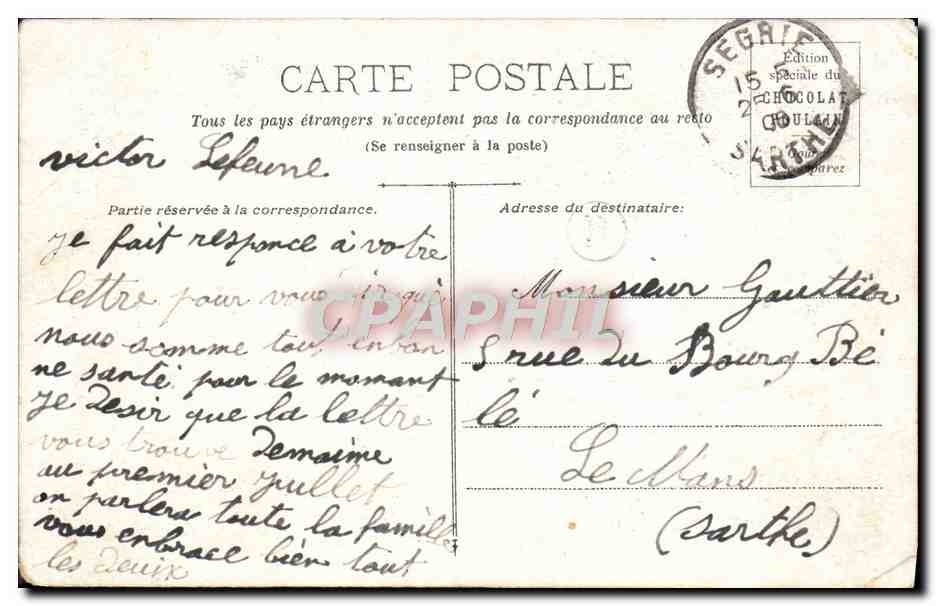 CARTE POSTALE
Tous les pays étrangers n'acceptent pas la correspondance au recto
(Se renseigner à la poste)
SEGRIE
15 5
6
06
SARTHE
Edition
spéciale du
CHOCOLAT
POULAIN
Goutez
et comparez
victor Lefeuvre
Partie réservée à la correspondance.
je fait responce à votre
lettre pour vous dir que
nous somme tout en bon
ne santé pour le momant
je desir que la lettre
vous trouve Demaime
au premier juillet
on parlera toute la famille
vous enbrace bien tout
les deuix
Adresse du destinataire:
Monsieur Gauttier
5 rue du Bourg Bé
lé
Le Mans
(Sarthe)
CPAPHIL